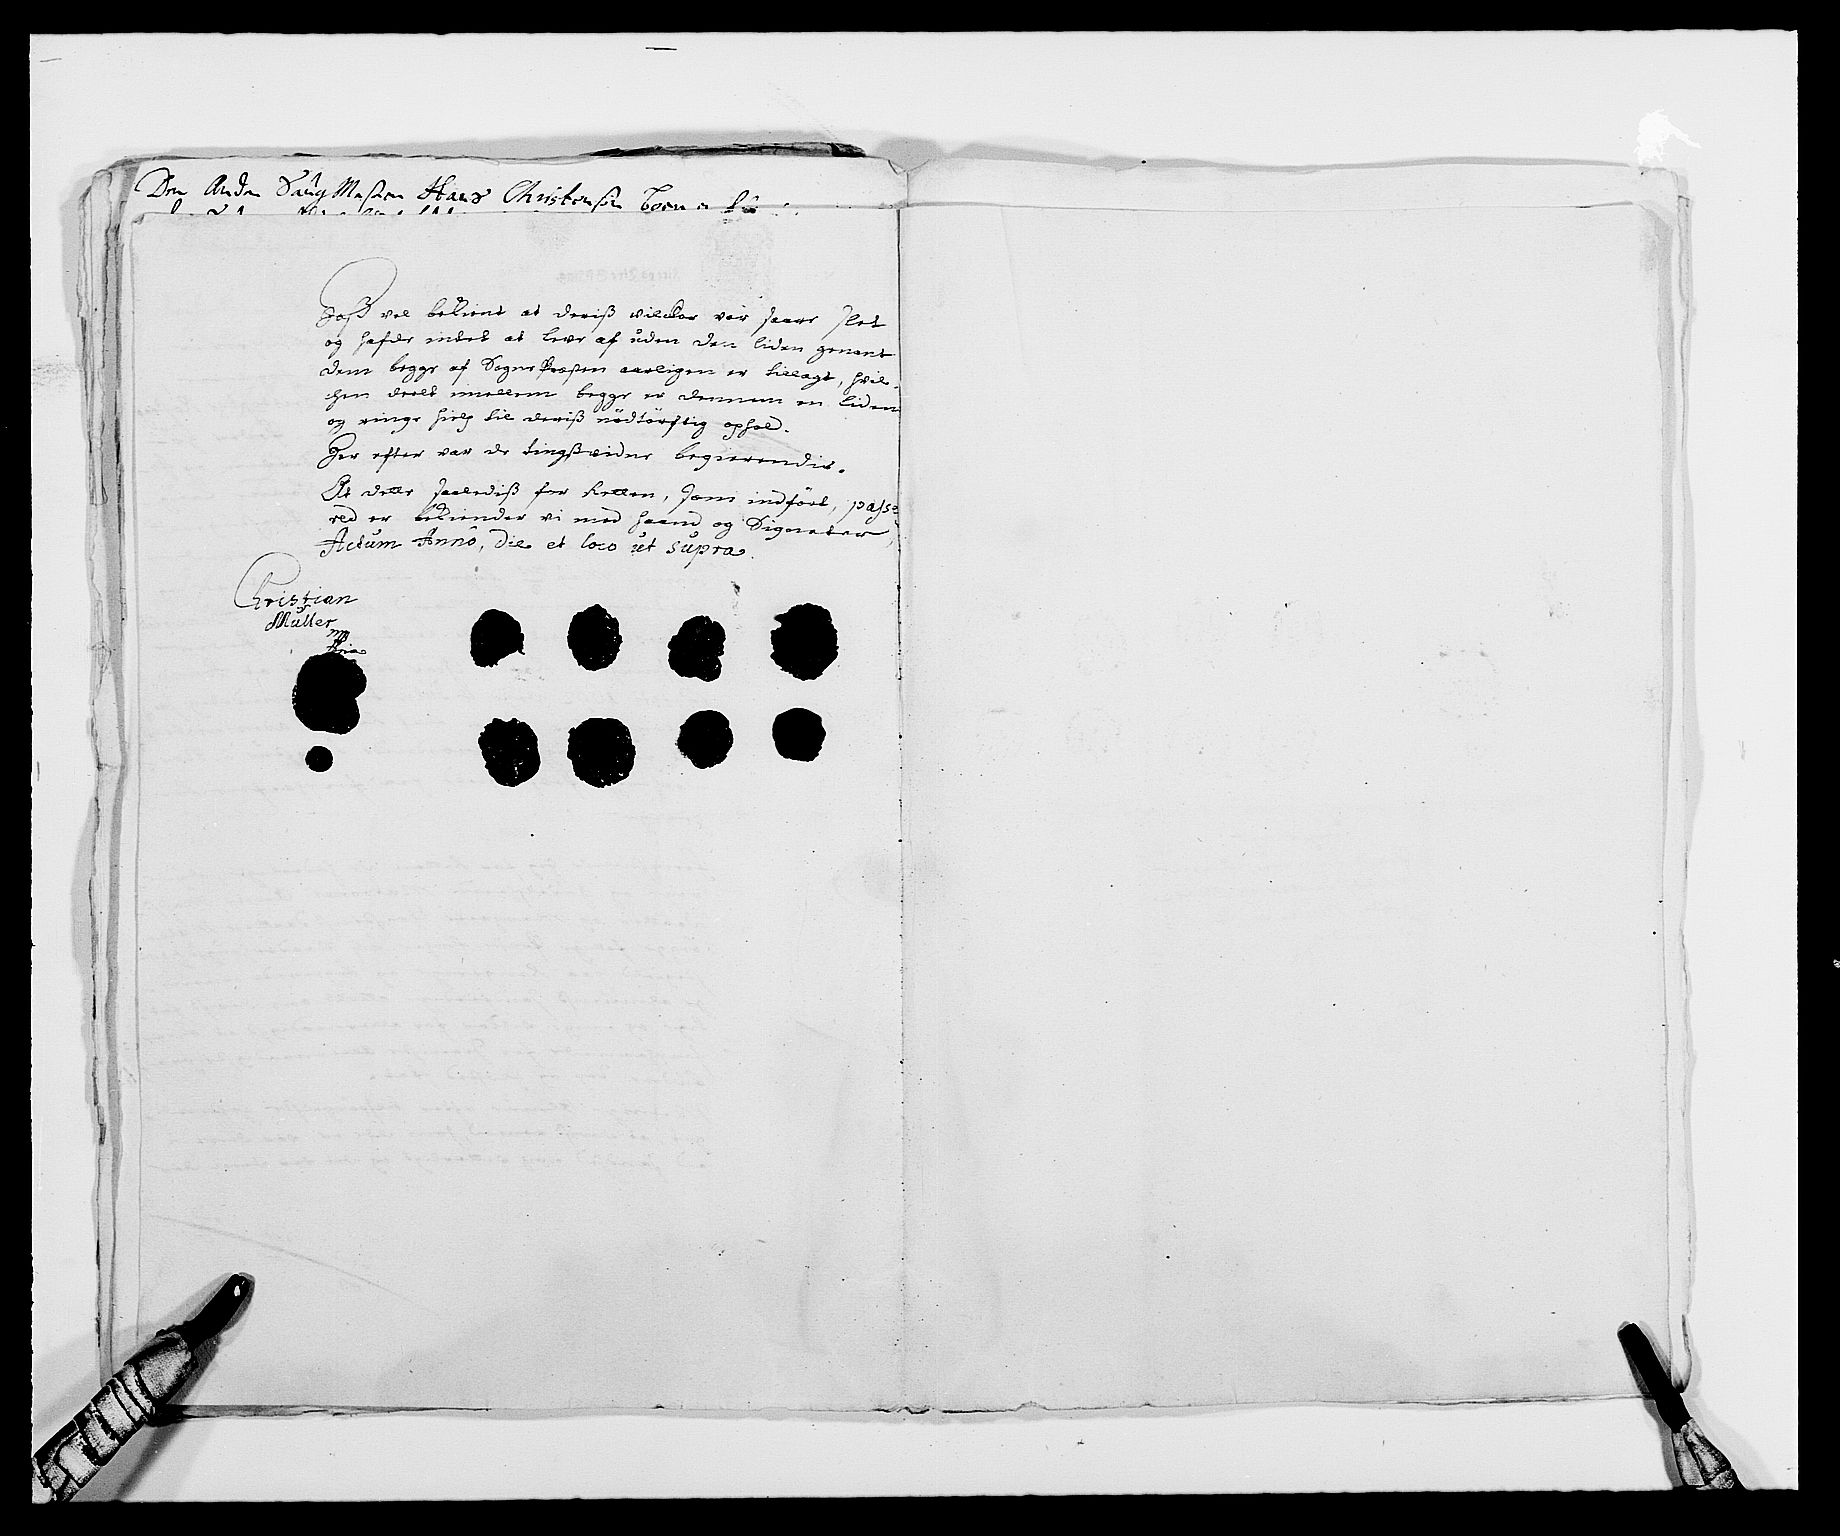 Den Anden Saug Mesten Hans Christensen
Joß vel bekient at deriß vilckor var saare slet
og hafde intet at leve af uden den liden genant
dem begge af Sogne Præsten aarligen er tillagt, hvil-
chen deelt imellem begge er dennem en liden
og ringe hielp til deriß nödtörftig ophold.
Her efter var de tingßvidne begierendis.
At dette saalediß for Retten, som indfört, passe
red er bekiender vi med haand og Signeter,
Actum Anno, Die et loco ut supra.
Christian
Müller
mp